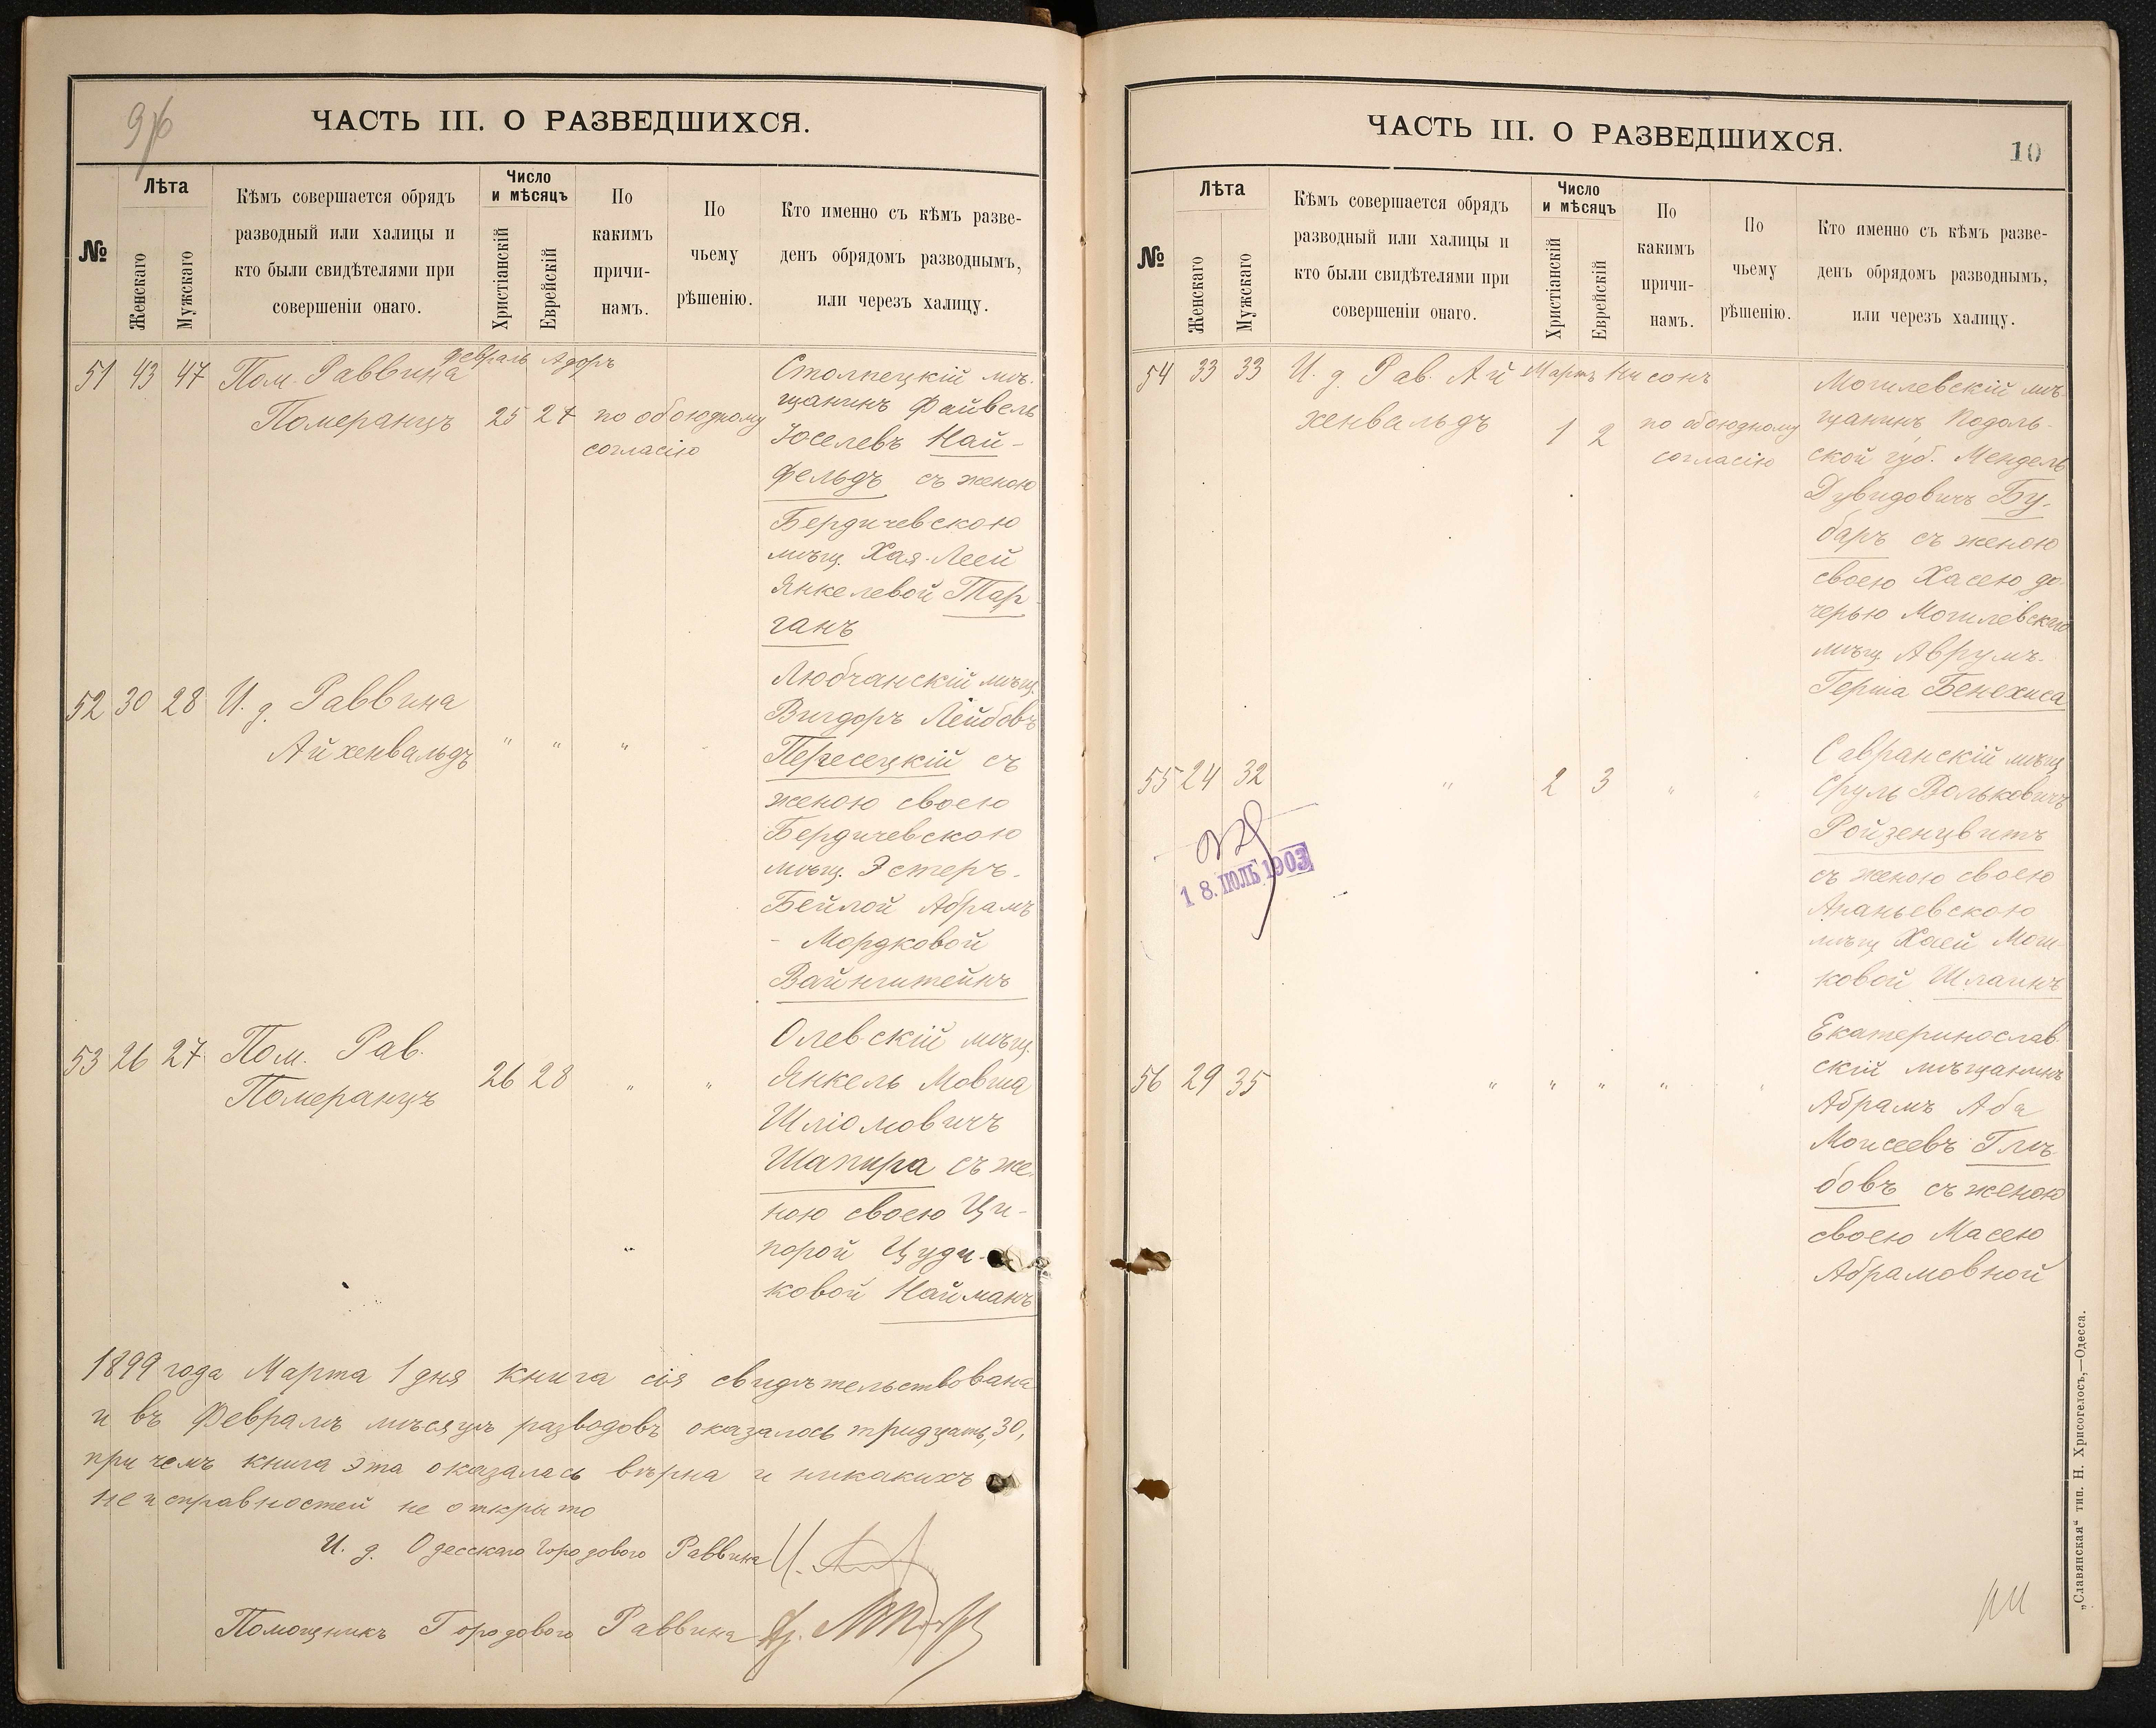 ЧАСТЬ III. О РАЗВЕДШИХСЯ.
№
Лѣта
Женскаго
Мужскаго
Кѣмъ совершается обрядъ
разводный или халицы и
кто были свидѣтелями при
совершеніи онаго.
Число
и мѣсяцъ
Христіанскій
Еврейскій
По
какимъ
причи-
намъ.
По
чьему
рѣшенію.
Кто именно съ кѣмъ разве-
денъ обрядомъ разводнымъ,
или черезъ халицу.
51 43 47 Пом. Раввина
Померанцъ
Февраль Адоръ
25 27 по обоюдному
согласію
Столпецкій мѣ-
щанинъ Файвель
Іоселевъ Най-
фельдъ съ женою
Бердичевскою
мѣщ. Хая-Леей
Янкелевой Тар-
ганъ
52 30 28 И. д. Раввина
Айхенвальдъ " " " "
Любчанскій мѣщ.
Вигдоръ Лейбовъ
Пересецкій съ
женою своею
Бердичевскою
мѣщ. Эстеръ-
Бейлой Абрамъ
- Мордковой
Вайнштейнъ
53 26 27 Пом. Рав.
Померанцъ 26 28 " "
Олевскій мѣщ.
Янкель Мовша
Шліомовичъ
Шапира съ же-
ною своею Ци-
порой Цуди-
ковой Найманъ
1899 года Марта 1 дня книга сія свидѣтельствована
и въ Февралѣ мѣсяцѣ разводовъ оказалось тридцать, 30,
при чемъ книга эта оказалась вѣрна и никакихъ
неисправностей не открыто
И. д. Одесскаго Городового Раввина
Помощникъ Городового Раввина
ЧАСТЬ III. О РАЗВЕДШИХСЯ.
10
№
Лѣта
Женскаго
Мужскаго
Кѣмъ совершается обрядъ
разводный или халицы и
кто были свидѣтелями при
совершеніи онаго.
Число
и мѣсяцъ
Христіанскій
Еврейскій
По
какимъ
причи-
намъ.
По
чьему
рѣшенію.
Кто именно съ кѣмъ разве-
денъ обрядомъ разводнымъ,
или черезъ халицу.
54 33 33 И. д. Рав. Ай
хенвальдъ
Мартъ Нисонъ
1 2 по обоюдному
согласію
Могилевскій мѣ-
щанинъ Подоль-
ской губ. Мендель
Дувидовичъ Бу-
баръ съ женою
своею Хасею до-
черью Могилевскаго
мѣщ. Аврумъ-
Герша Бенехиса
55 24 32 " 2 3 " "
Савранскій мѣщ
Сруль Вольковичъ
Ройзенцвитъ
съ женою своею
Ананьевскою
мѣщ Хаей Мош-
ковой Шлаинъ
18. ІЮЛЬ 1903
56 29 35 " " " " "
Екатеринослав
скій мѣщанинъ
Абрамъ Аба
Моисеевъ Глѣ-
бовъ съ женою
своею Масею
Абрамовной
„Славянская“ тип. Н. Хрисогелосъ,—Одесса.